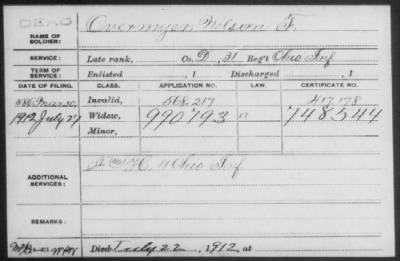 DEAD
NAME OF SOLDIER: Overmyer, Wilson F.
SERVICE: Late rank, Co. D, 31 Reg't Ohio Inf
TERM OF SERVICE: Enlisted , 1 Discharged , 1
DATE OF FILING. CLASS. APPLICATION NO. LAW. CERTIFICATE NO.
Invalid, 568,217 417,178
1912 July 27 Widow, 990793 748544
Minor,
ADDITIONAL SERVICES: H, 11 Ohio Inf
REMARKS:
Died July 22, 1912, at